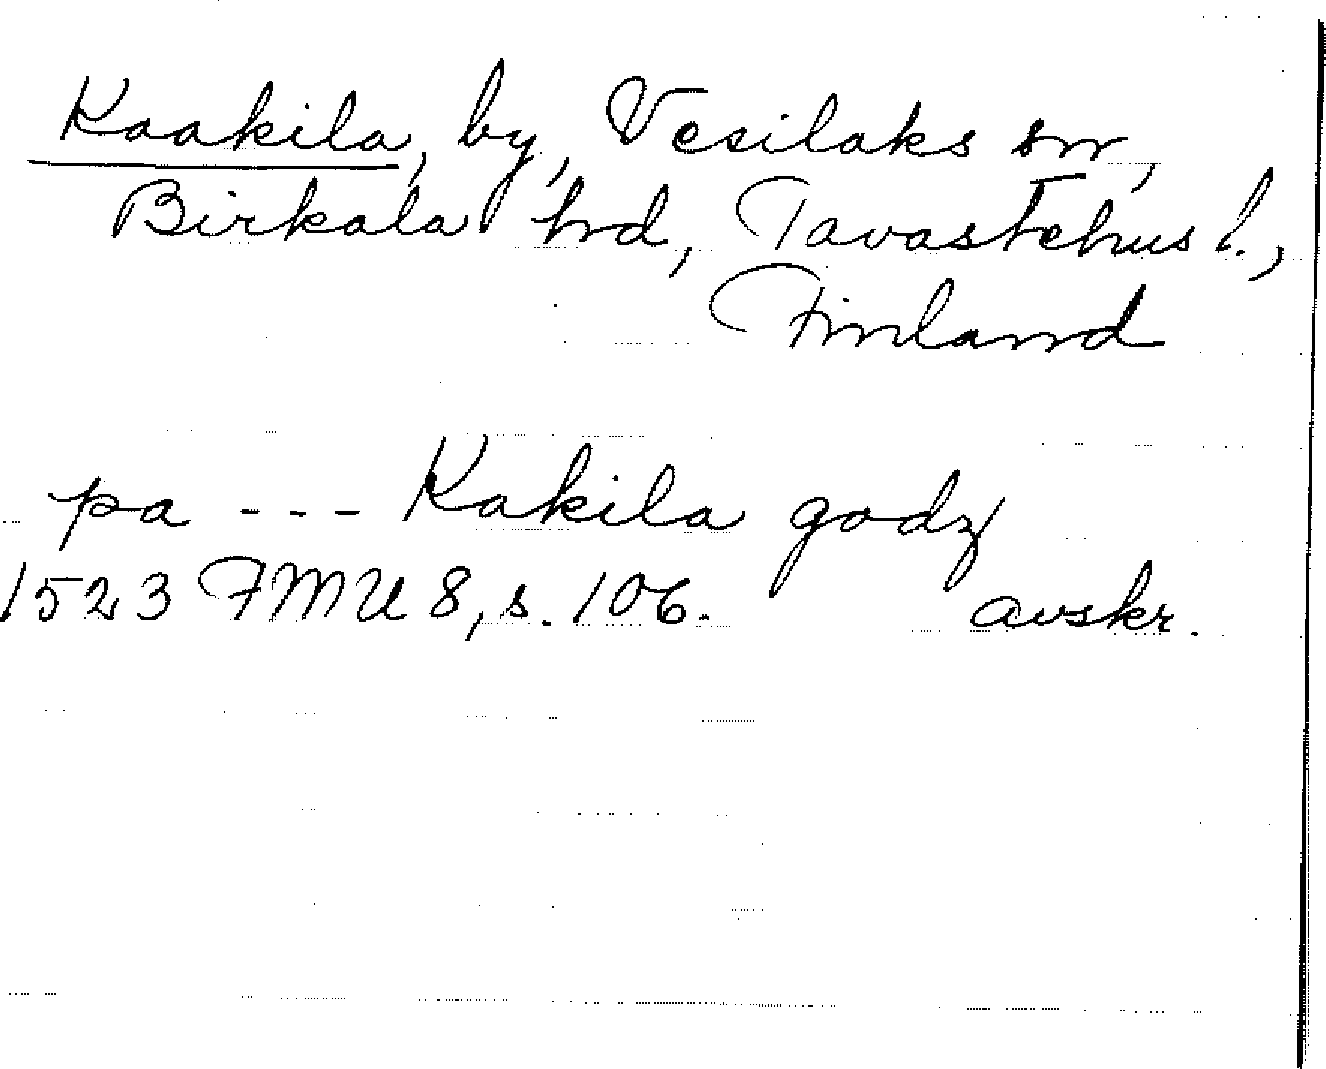 Kaakila, by, Vesilaks sn,
Birkala hd, Tavastehus l.,
Finland
pa --- Kakila godz
1523 FMU 8, s. 106. avskr.